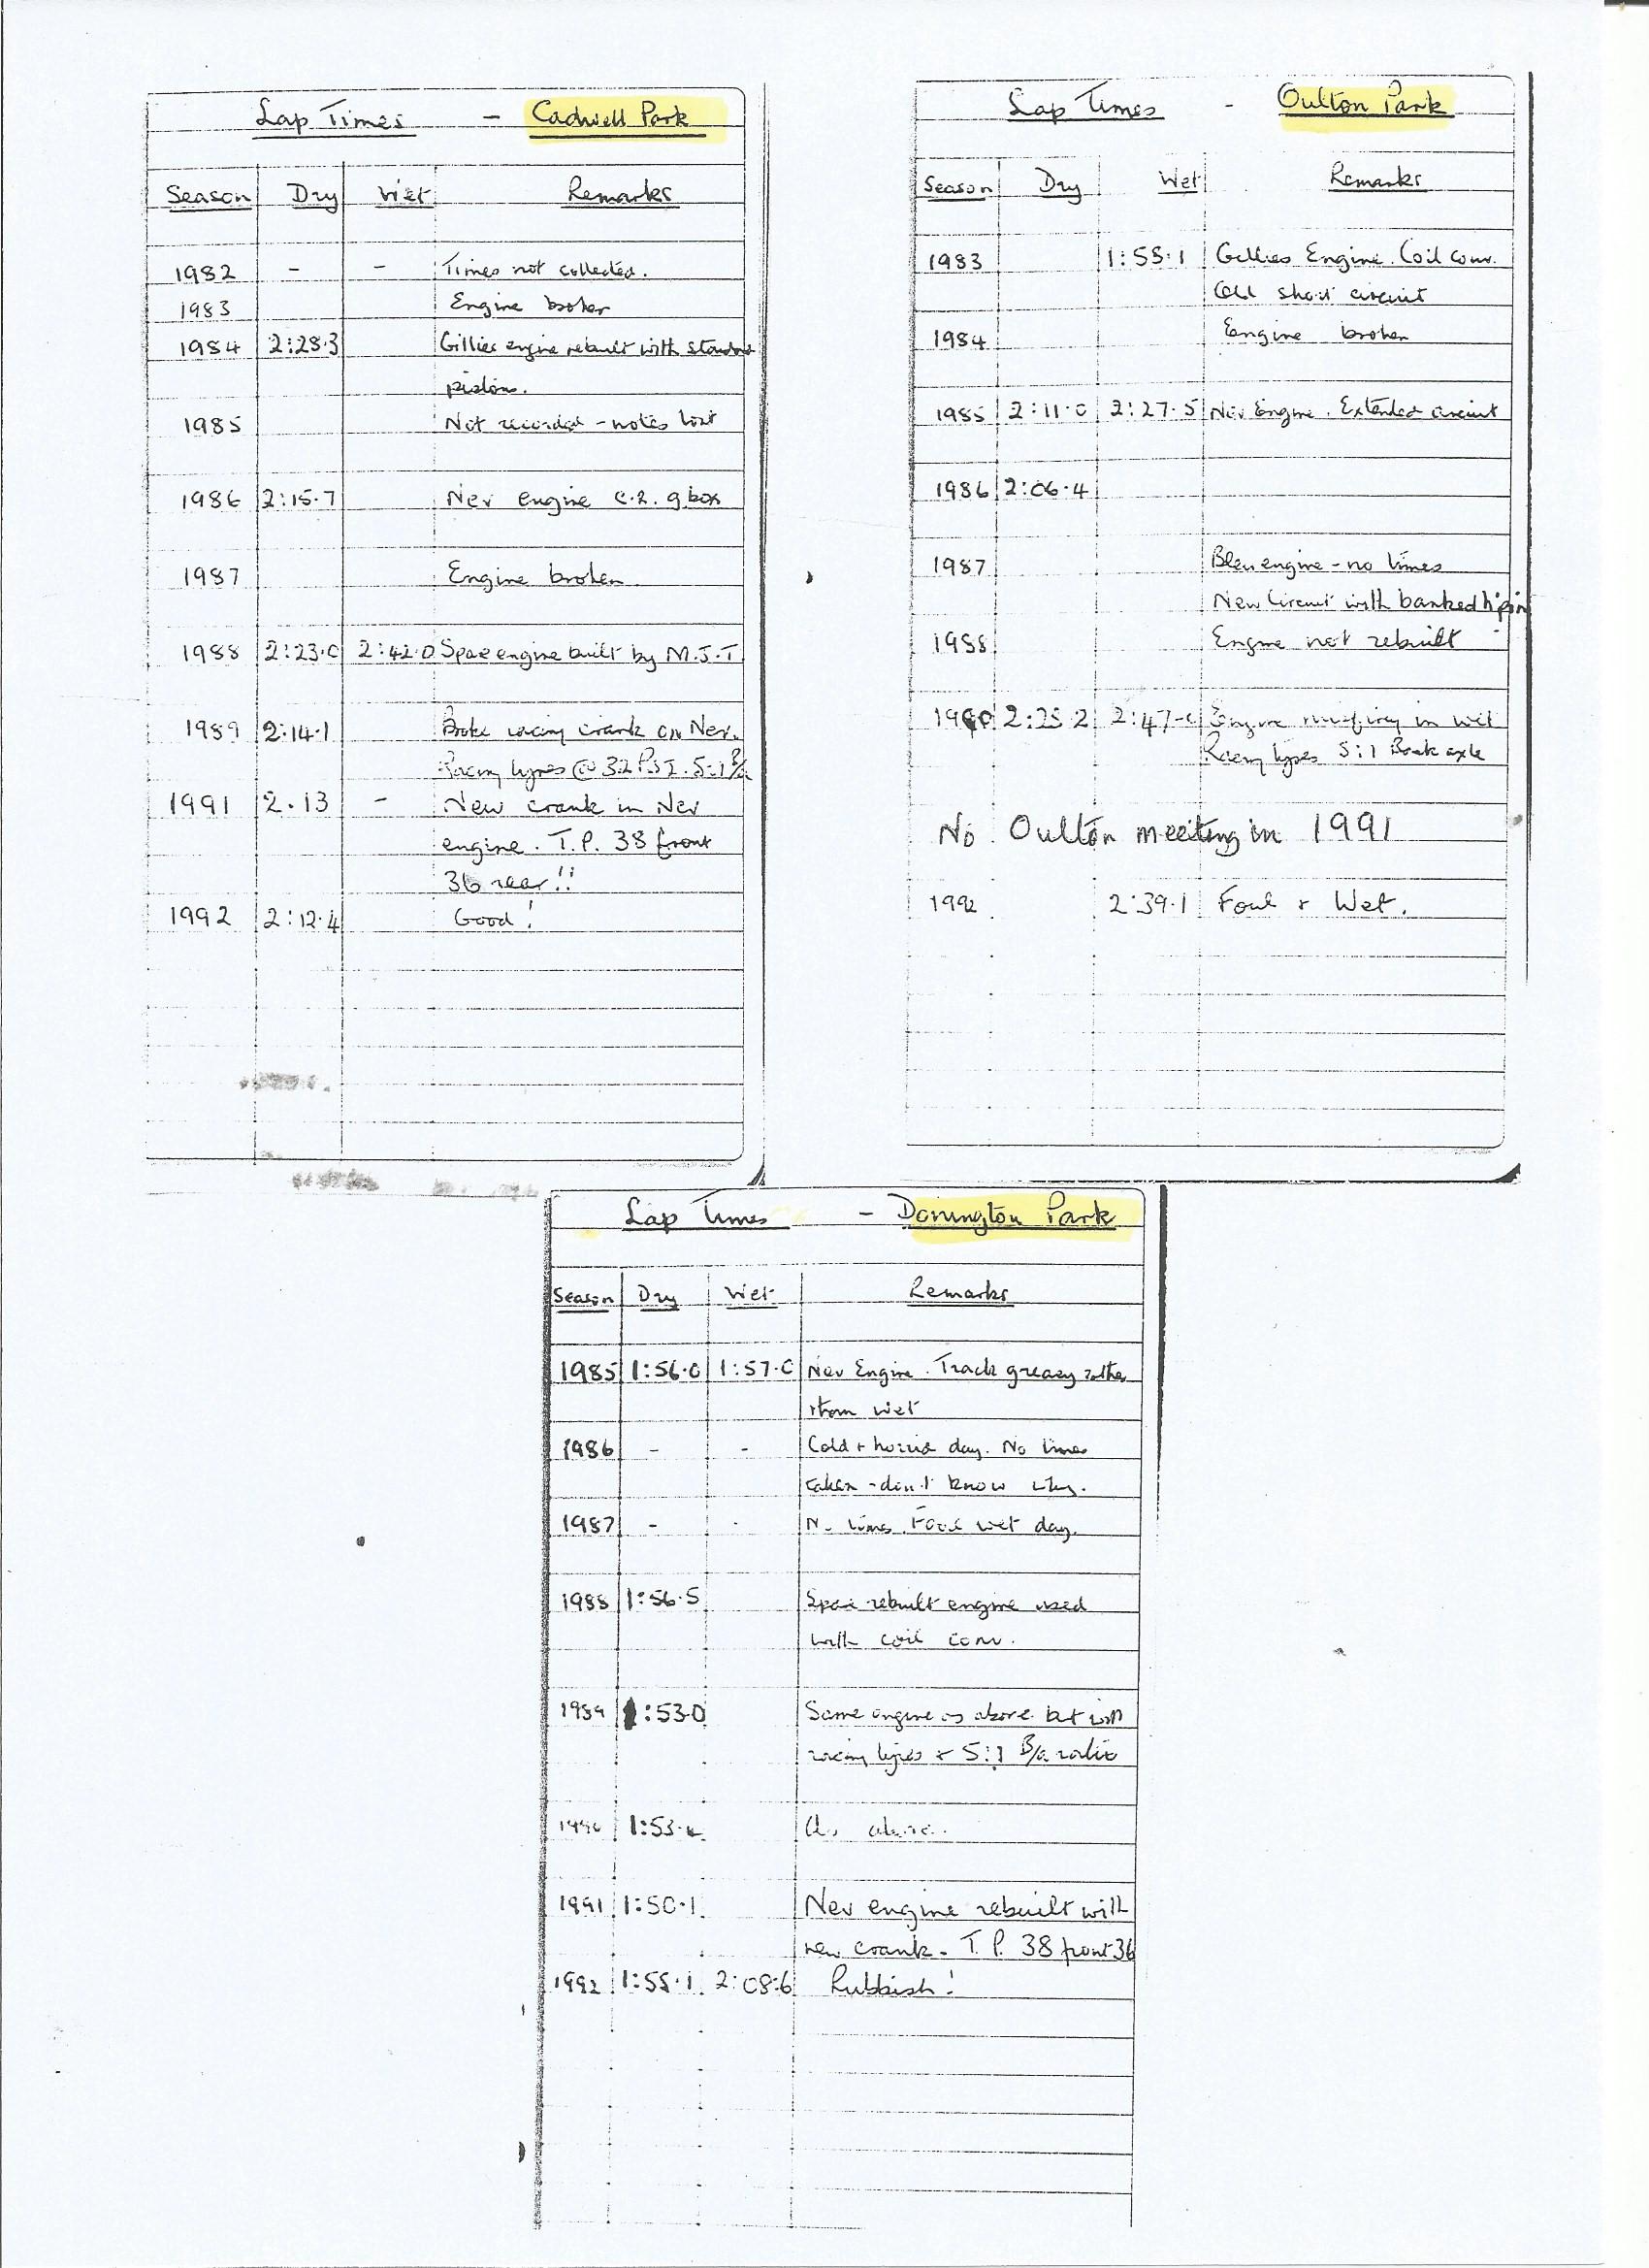 Lap Times - Cadwell Park
Season Dry Wet Remarks
1982 - - Times not collected.
1983 Engine broken
1984 2:28.3 Gillies engine rebuilt with standard
pistons.
1985 Not recorded - notes lost
1986 2:15.7 Nev engine c.r. g.box
1987 Engine broken
1988 2:23.0 2:42.0 Spare engine built by M.J.T
1989 2:14.1 Broke racing crank on Nev.
Racing tyres @ 32 P.S.I. 5:1 B/a
1991 2.13 - New crank in Nev
engine. T.P. 38 front
36 rear!!
1992 2:12.4 Good!
Lap Times - Oulton Park
Season Dry Wet Remarks
1983 1:55.1 Gillies Engine. Coil conv.
Old short circuit
1984 Engine broken
1985 2:11.0 2:27.5 Nev Engine. Extended circuit
1986 2:06.4
1987 Blew engine - no times
New Circuit with banked h'pin
1988 Engine not rebuilt
1990 2:25.2 2:47 Engine misfiring in wet
Racing tyres 5:1 Back axle
No Oulton meeting in 1991
1992 2:39.1 Foul + Wet.
Lap Times - Donington Park
Season Dry Wet Remarks
1985 1:56.0 1:57.0 Nev Engine. Track greasy rather
than wet
1986 - - Cold + horrid day. No times
taken - don't know why.
1987 - - No times. Foul wet day.
1988 1:56.5 Spare rebuilt engine used
with coil conv.
1989 1:53.0 Same engine as above but with
racing tyres + 5:1 B/a ratio
1990 1:53 As above.
1991 1:50.1 Nev engine rebuilt with
new crank. T.P. 38 front 36
1992 1:55.1 2:08.6 Rubbish!